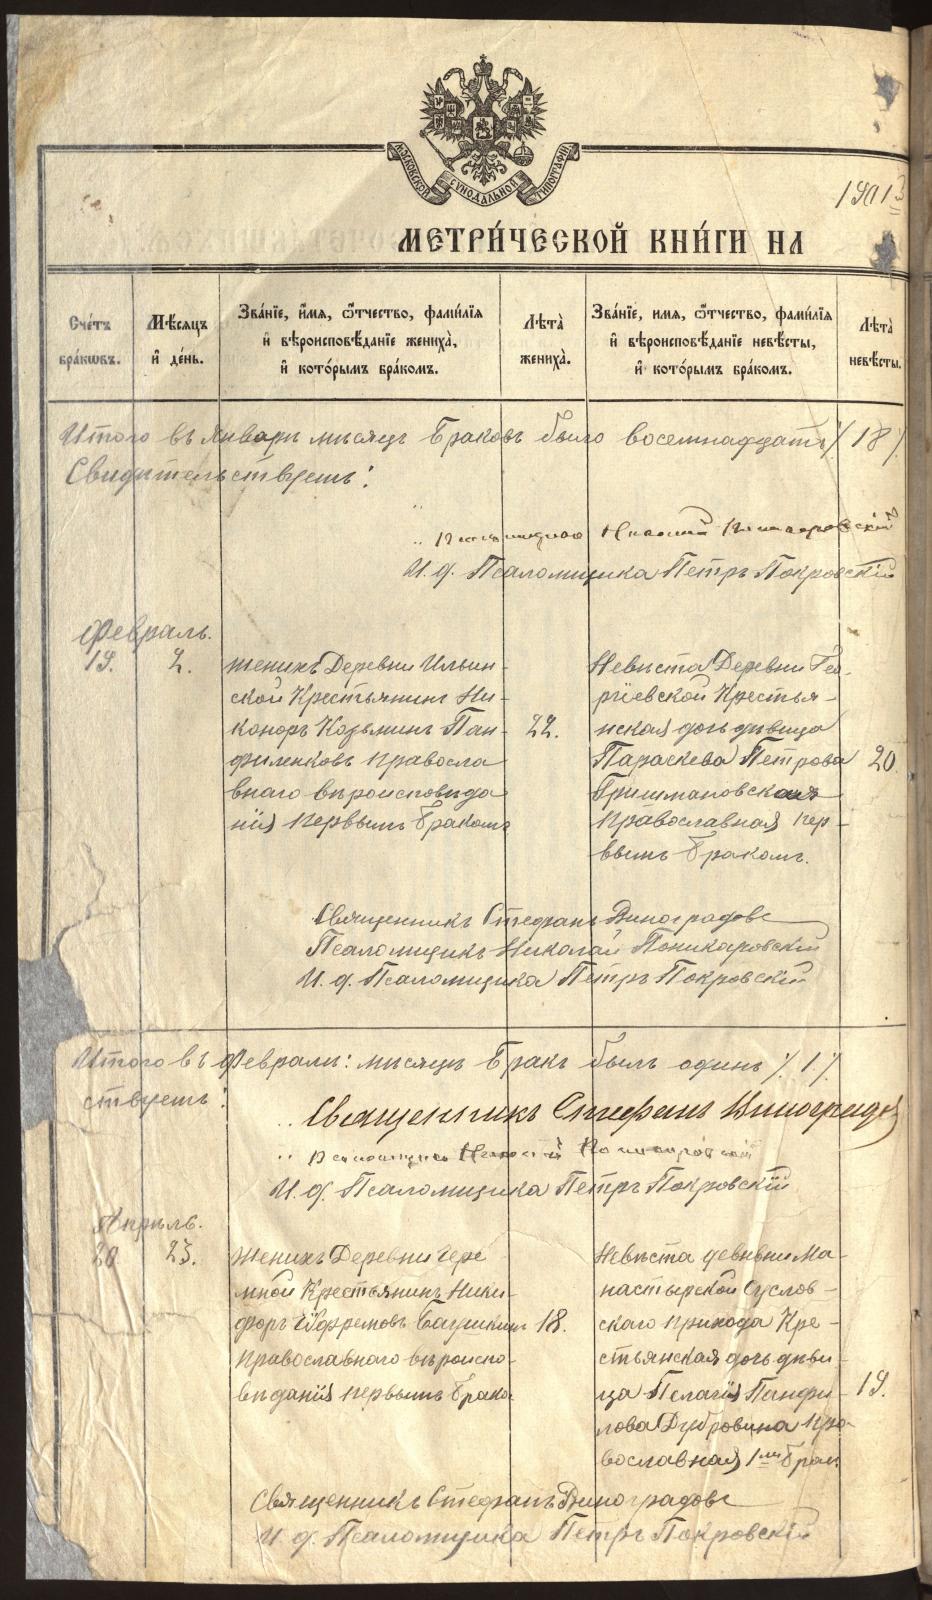 МОСКОВСКОЙ СУНОДАЛЬНОЙ ТИПОГРАФІИ
1901
МЕТРИ́ЧЕСКОЙ КНИ́ГИ НА
Сче́тъ бра́кѡвъ.
Мѣ́сяцъ и҆ де́нь.
Зва́нїе, и҆́мѧ, ѻ҆́тчество, фами́лїѧ и҆ вѣроисповѣ́данїе жениха̀, и҆ кото́рымъ бра́комъ.
Лѣта̀ жениха̀.
Зва́нїе, имѧ, ѻ҆́тчество, фами́лїѧ и҆ вѣроисповѣ́данїе невѣ́сты, и҆ кото́рымъ бра́комъ.
Лѣта̀ невѣ́сты.
Итого въ Январѣ мѣсяцѣ Браковъ было восемнадцать % 18 %
Свидѣтельствуемъ:
И. д. Псаломщика Петръ Покровскій
Февраль.
19. 2.
женихъ Деревни Ильин-
ской Крестьянинъ Ни-
каноръ Козьминъ Пан-
филенковъ Правосла
внаго вѣроисповѣда
нія первымъ бракомъ
22.
Невѣста Деревни Гео-
ргіевской Крестья-
нская дочь дѣвица
Параскева Петрова
Гришмановская
православная пер-
вымъ бракомъ.
20
Священникъ Стефанъ Виноградовъ
Псаломщикъ Николай Поникаровскій
И. д. Псаломщика Петръ Покровскій
Итого въ Февралѣ: мѣсяцѣ Бракъ былъ одинъ % 1 %
ствуемъ:
Священникъ Стефанъ Виноградовъ
И. д. Псаломщика Петръ Покровскій
Апрѣль.
20 23.
Женихъ Деревни Чере
мной Крестьянинъ Ники-
форъ Ефремовъ Багушкинъ
православнаго вѣроиспо-
вѣданія первымъ брако
18.
Невѣста деревни Ма-
настырской Суслов-
скаго прихода Кре-
стьянская дочь дѣви-
ца Пелагія Панфи-
лова Дубровина Пра-
вославная 1мъ брак
19.
Священникъ Стефанъ Виноградовъ
И. д. Псаломщика Петръ Покровскій